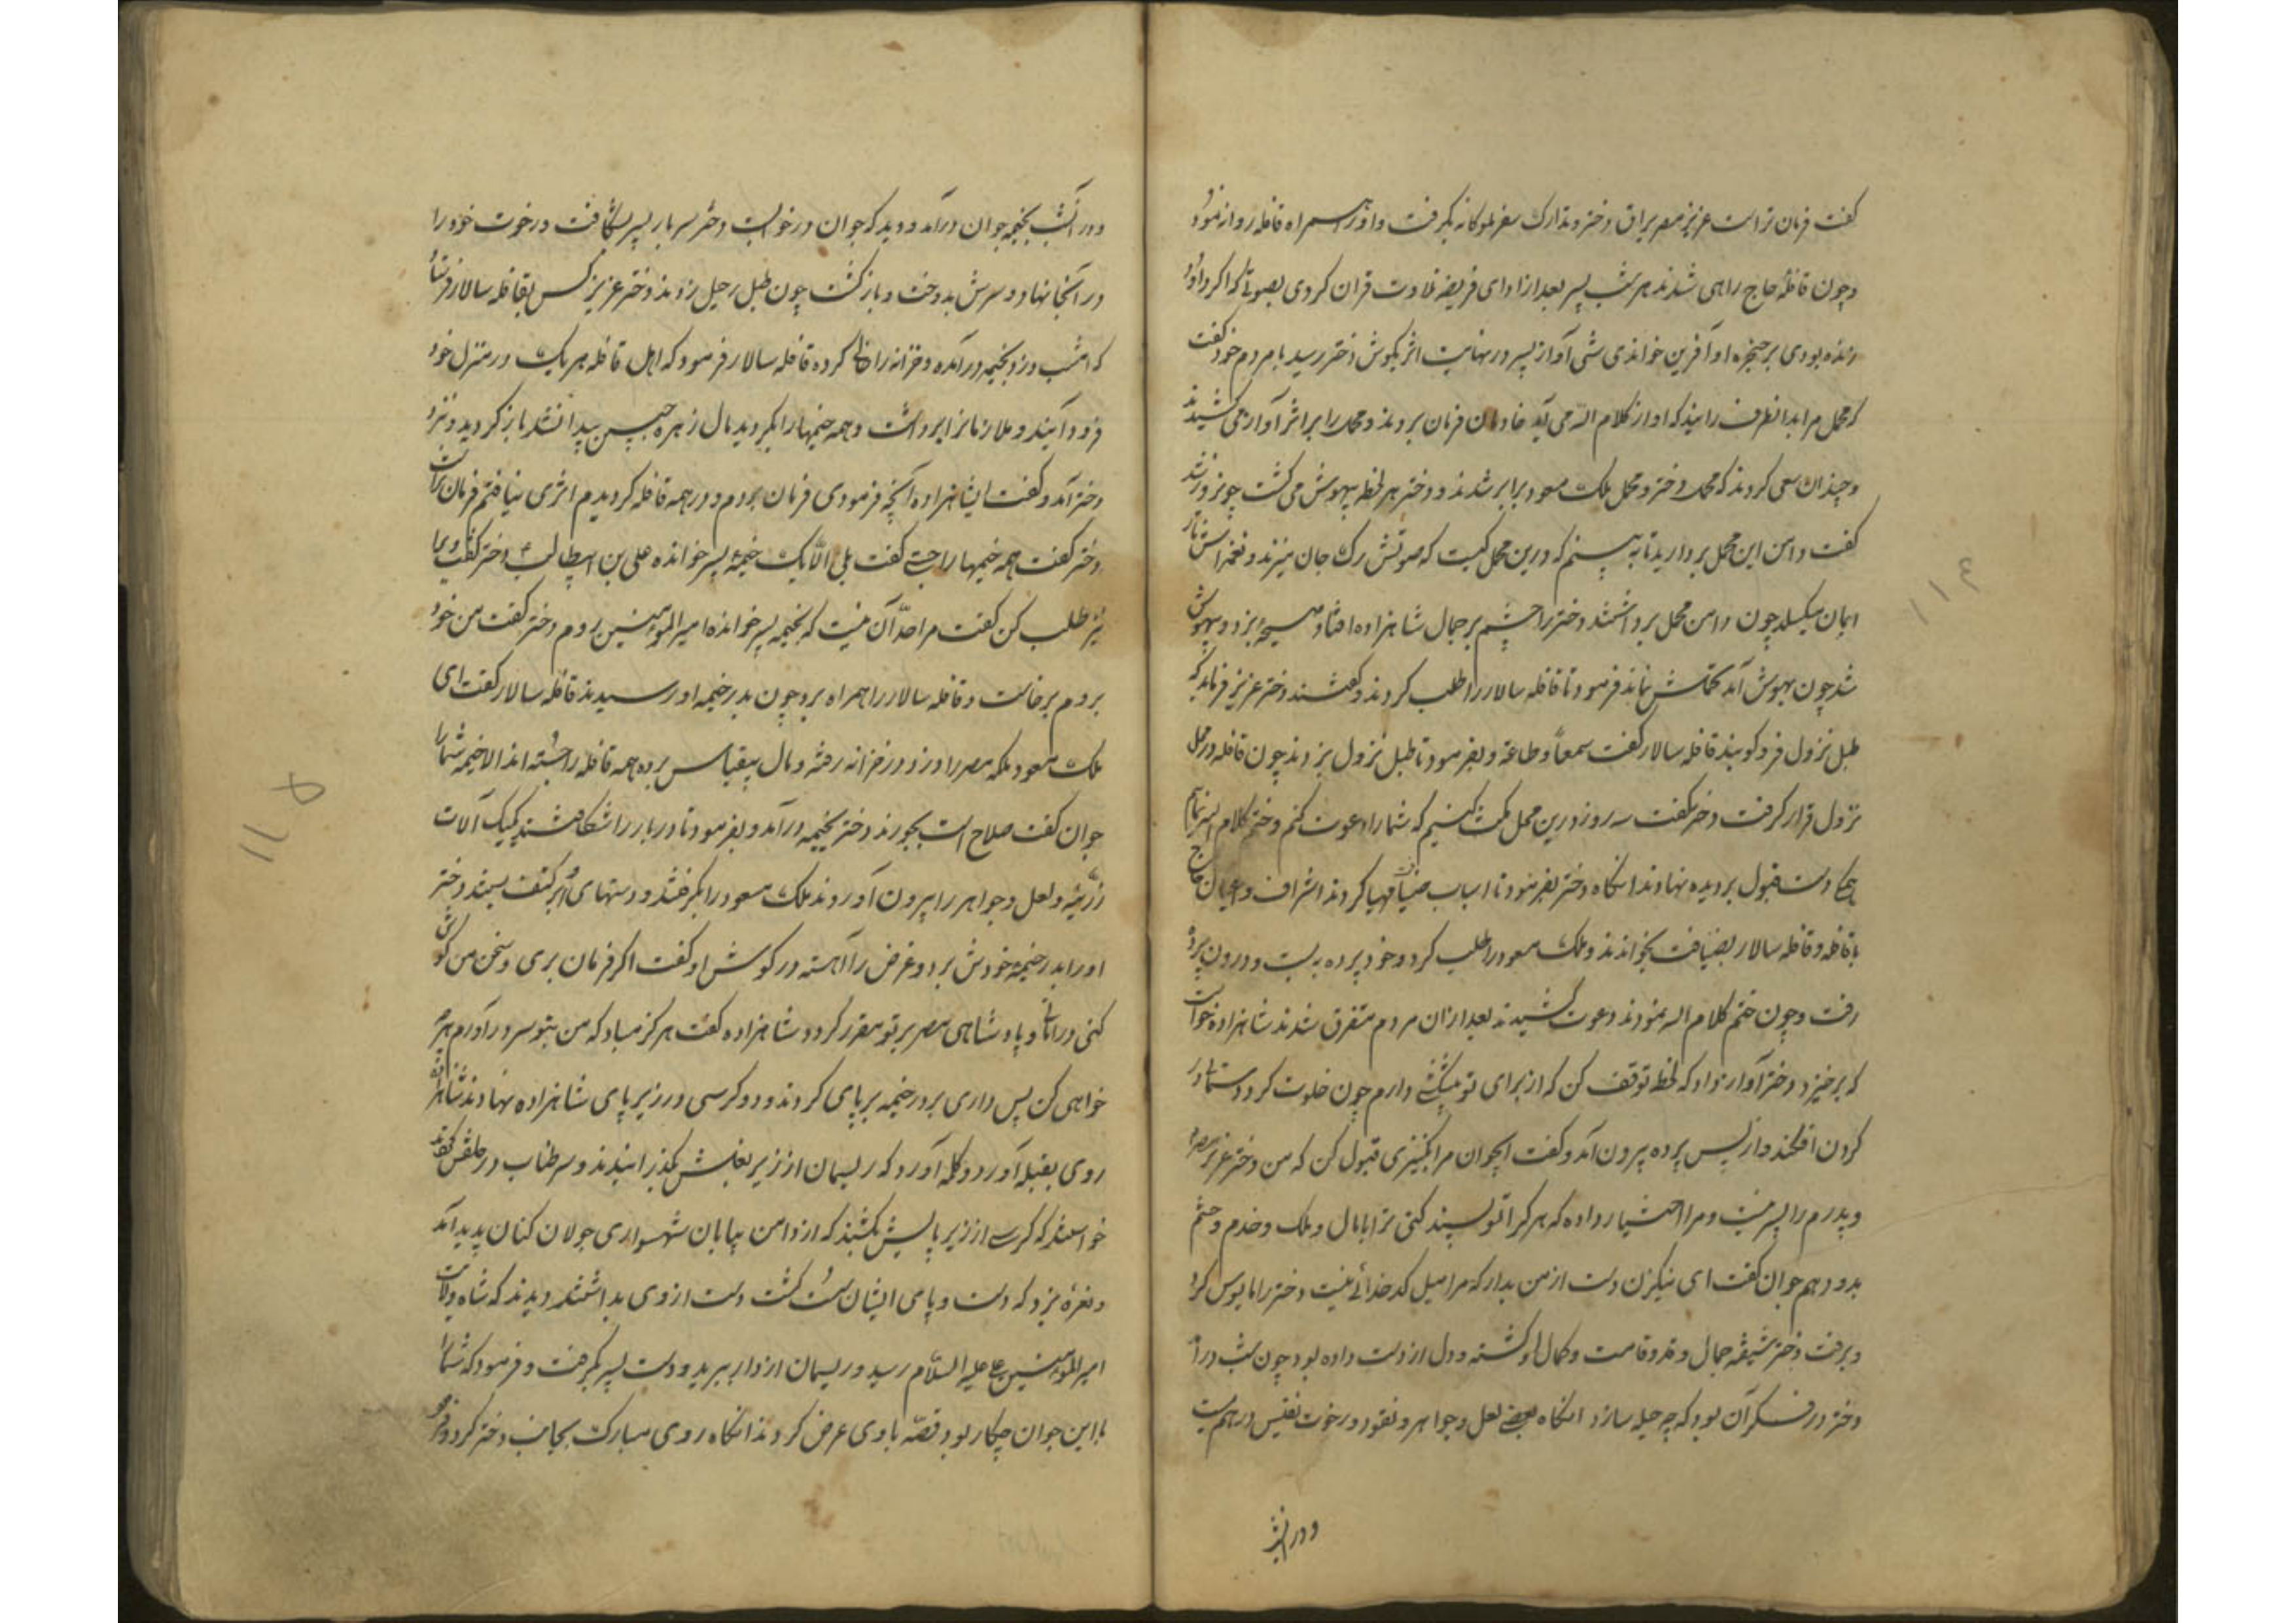 گفت فرمان تراست عزیز مصر یراق دختر و تدارک سفر ملوکانه بگرفت و او را همراه قافله روانه نمود
و چون قافله حاج راهی شدند هر شب پسر بعد از ادای فریضه تلاوت قران کردی بصوتی که اگر داود
زنده بودی بر حنجره او آفرین خواندی شبی آواز پسر در نهایت اثر بگوش دختر رسید با مردم خود گفت
که محمل مرا بدانطرف رانید که اواز کلام الله می آید خادمان فرمان بردند و محمل را بر اثر آواز می کشیدند
و چندان سعی کردند که محمل دختر و محمل ملک مسعود برابر شدند و دختر هر لحظه بیهوش می گشت چون روز شد
گفت دامن این محمل بردارید تا به بینم که درین محمل کیست که صوتش رک جان میزند و نغمه اش تار
ایمان میکسلد چون دامن محمل برداشتند دختر را چشم بر جمال شاهزاده افتاد صیحه بزد و بیهوش
شد چون بهوش آمد تحملش نماند فرمود تا قافله سالار را طلب کردند و گفتند دختر عزیز فرماید که
طبل نزول فرو کوبند قافله سالار گفت سمعا و طاعة و بفرمود تا طبل نزول بزدند چون قافله در محل
نزول قرار گرفت دختر گفت سه روز درین محل مکث کنیم که شما را دعوت کنم و ختم کلام الله نمایم
همه دست قبول بر دیده نهادند انگاه دختر بفرمود تا اسباب ضیافت مهیا کردند اشراف و اعیان حاج
با قافله و قافله سالار بضیافت بخواندند و ملک مسعود را طلب کرد و خود پرده به بست و درون پرده
رفت و چون ختم کلام الله نمودند دعوت کشیدند بعد ازان مردم متفرق شدند شاهزاده خواست
که برخیزد دختر آواز داد که لحظه توقف کن که از برای تو پیشکشی دارم چون خلوت کرد دستمال در
گردن افکند و از پس پرده بیرون آمد و گفت ایجوان مرا بکنیزی قبول کن که من دختر عزیز مصرم
و پدرم را پسر نیست و مرا اختیار داده که هر کرا تو پسند کنی ترا با مال و ملک و خدم و حشم
بدو دهم جوان گفت ای نیکزن دست از من بدار که مرا میل کدخدائی نیست دختر را مایوس کرد
و برفت دختر شیفته جمال و قد و قامت و کمال او گشته و دل از دست داده بود چون شب درآمد
دختر در فکر آن بود که چه حیله سازد انگاه بعضی لعل و جواهر و نقود و رخوت نفیس در هم بست
و در انشب
و در آنشب بخیمه جوان درآمد و دید که جوان در خوابست دختر سر بار پسر بشکافت و رخوت خود را
در آنجا نهاد و سرش بدوخت و بازگشت چون طبل رحیل زدند دختر عزیز کس بقافله سالار فرستاد
که امشب دزد بخیمه درآمده و خزانه را خالی کرده قافله سالار فرمود که اهل قافله هر یک در منزل خود
فرود آیند و ملازمانرا برداشت و همه خیمها را بگردید مال زهره جبین پیدا نشد باز گردید و نزد
دختر آمد و گفت ایشاهزاده آنچه فرمودی فرمان بردم و در همه قافله گردیدم اثری نیافتم فرمان تراست
دختر گفت همه خیمها را جستی گفت بلی الا یک خیمه پسر خوانده علی بن ابیطالب دختر گفت ویرا
نیز طلب کن گفت مرا حد آن نیست که بخیمه پسر خوانده امیر المؤمنین روم دختر گفت من خود
بروم برخاست و قافله سالار را همراه برد چون بدر خیمه او رسیدند قافله سالار گفت ای
ملک مسعود ملکه مصر را دزد در خزانه رفته و مال بیقیاس برده همه قافله را جسته اند الا خیمه شما را
جوان گفت صلاح است بجویند دختر بخیمه درآمد و بفرمود تا در بار را شکافتند یکیک آلات
زرینه و لعل و جواهر را بیرون آوردند ملک مسعود را بگرفتند و دستهای او بر کتف بستند دختر
او را بدر خیمه خودش برد و غرض را آهسته در گوش او گفت اگر فرمان بری و سخن من گوش
کنی و پادشاهی مصر بر تو مقرر گردد شاهزاده گفت هرگز مباد که من بتو سر درآورم هر چه
خواهی کن پس داری بر در خیمه بر پای کردند و دو کرسی در زیر پای شاهزاده نهادند شاهزاده
روی بقبله آورد و کلمه آورد که ریسمان از زیر بغلش بگذرانیدند و سر طناب در حلقش افکندند
خواستند که کرسی از زیر پایش بکشند که از دامن بیابان شهسواری جولان کنان پدید آمد
و نعره بزد که دست و پای ایشان سست گشت دست از وی بداشتند دیدند که شاه ولایت
امیر المؤمنین علی علیه السلام رسید و ریسمان از دار ببرید و دست پسر بگرفت و فرمود که شما را
با این جوان چکار بود قصه با وی عرض کردند انگاه روی مبارک بجانب دختر کرد و فرمود